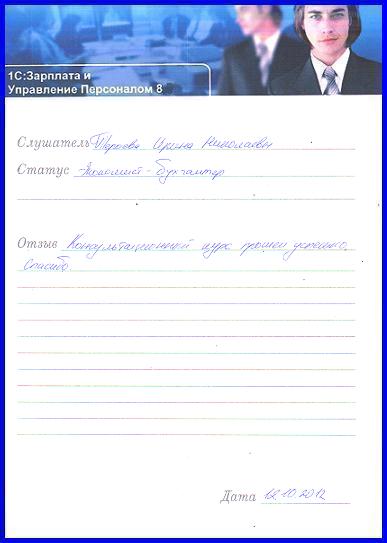 1С:Зарплата и
Управление Персоналом 8
Слушатель Ирина Николаевна
Статус Экономист-бухгалтер
Отзыв Консультационный курс прошел успешно.
Спасибо.
Дата 12.10.2012